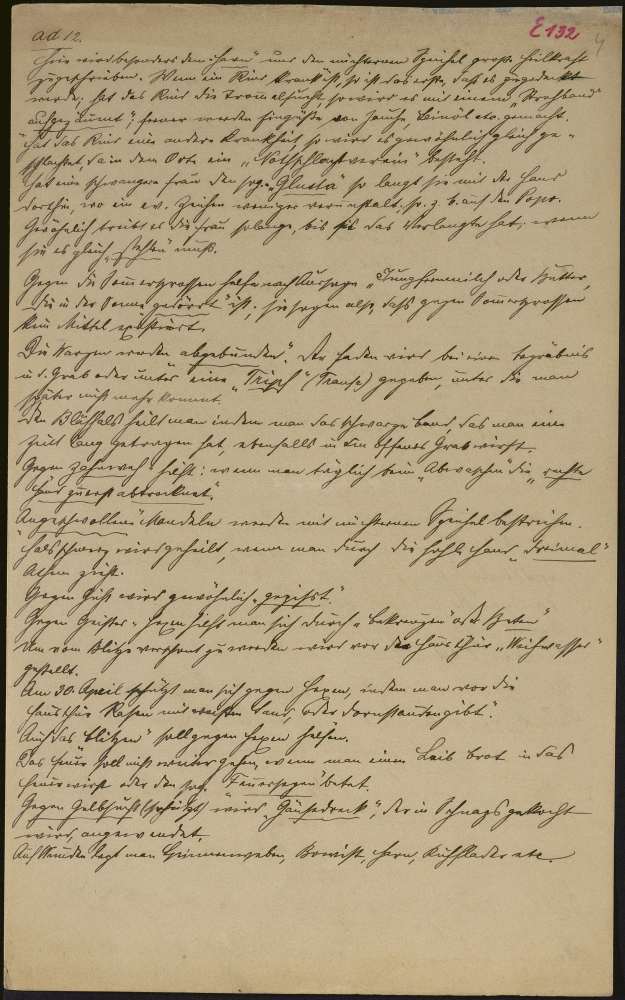 ad 12.
E 132
4
Hier wird besonders dem Harn und dem nüchternen Speichel große Heilkraft
zugeschrieben. Wenn ein Rind krank ist, so ist das erste, daß es zugedeckt
werde; hat das Rind die Trommelsucht, so wird es mit einem „Strohband"
aufgezäumt"; ferner werden Eingüsse von Jauche, Leinöl etc. gemacht.
Hat das Rind eine andere Krankheit, so wird es gewöhnlich gleich ge-
schlachtet, da in dem Orte ein „Nothschlachtverein" besteht.
Hat eine schwangere Frau den sog. „Glusta" so langt sie mit der Hand
dorthin, wo ein ev. Zeichen weniger verunstalt, so z. b. auf den Popo.
Gewöhnlich treibt es die Frau solange, bis sie das Verlangte hat, wenn
sie es gleich „stehlen" muß.
Gegen die Sommersprossen helfe nach Aussage „Jungfernmilch oder Butter,
die in der Sonne gedörrt" ist. sie sagen also, daß gegen Sommersprossen
kein Mittel existiert.
Die Warzen werden „abgebunden". Der Faden wird bei einem Begräbnis
in d. Grab oder unter eine „Tripf" (Traufe) gegeben, unter die man
später nicht mehr kommt.
Den Blähhals heilt man indem man das schwarze Band, das man eine
Zeit lang getragen hat, ebenfalls in ein offenes Grab wirft.
Gegen Zahnweh hilft: wenn man täglich beim „Abwaschen" die „rechte
Hand zuerst abtrocknet".
„Angeschwollene" Mandeln werden mit nüchternem Speichel bestrichen.
Halsschmerz wird geheilt, wenn man durch die hohle Hand „dreimal"
Athem zieht.
Gegen Gicht wird gewöhnlich „gegichst".
Gegen Geister u. Hexen hilft man sich durch „bekreuzen" oder „Beten"
Um vom Blitze verschont zu werden wird vor die Hausthür „Weihwasser"
gestellt.
Am 30. April schützt man sich gegen Hexen, indem man vor die
Hausthür Rasen mit weißem Sand, oder Dornstauden gibt".
Auch das „blitzen" soll gegen Hexen helfen.
Das Feuer soll nicht weiter gehen, wenn man einen Laib Brot in das
Feuer wirft oder den sog. „Feuersegen" betet.
Gegen Gelbsucht wird „Gänsedreck", der in Schnaps gekocht
wird, angewendet.
Auf Wunden legt man Spinnengeweben, Bowist, Harn, Kuhfladen etc.